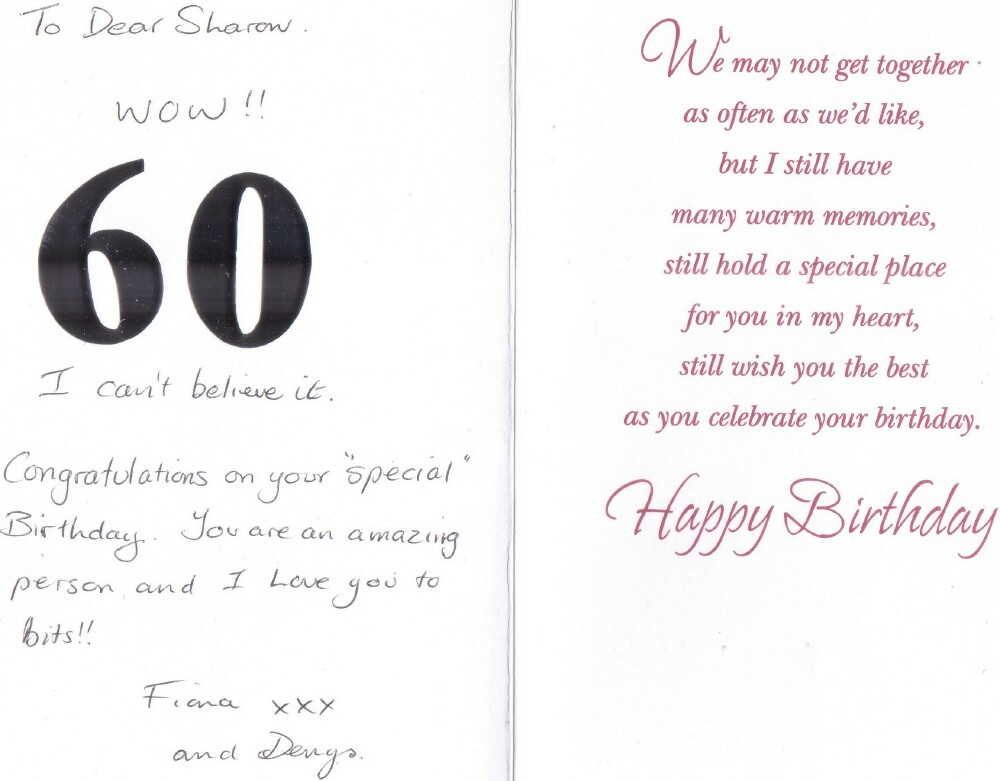 To Dear Sharon.
WOW!!
60
I can't believe it.
Congratulations on your "special"
Birthday. You are an amazing
person and I Love you to
bits!!
Fiona xxx
and Denys.
We may not get together
as often as we'd like,
but I still have
many warm memories,
still hold a special place
for you in my heart,
still wish you the best
as you celebrate your birthday.
Happy Birthday